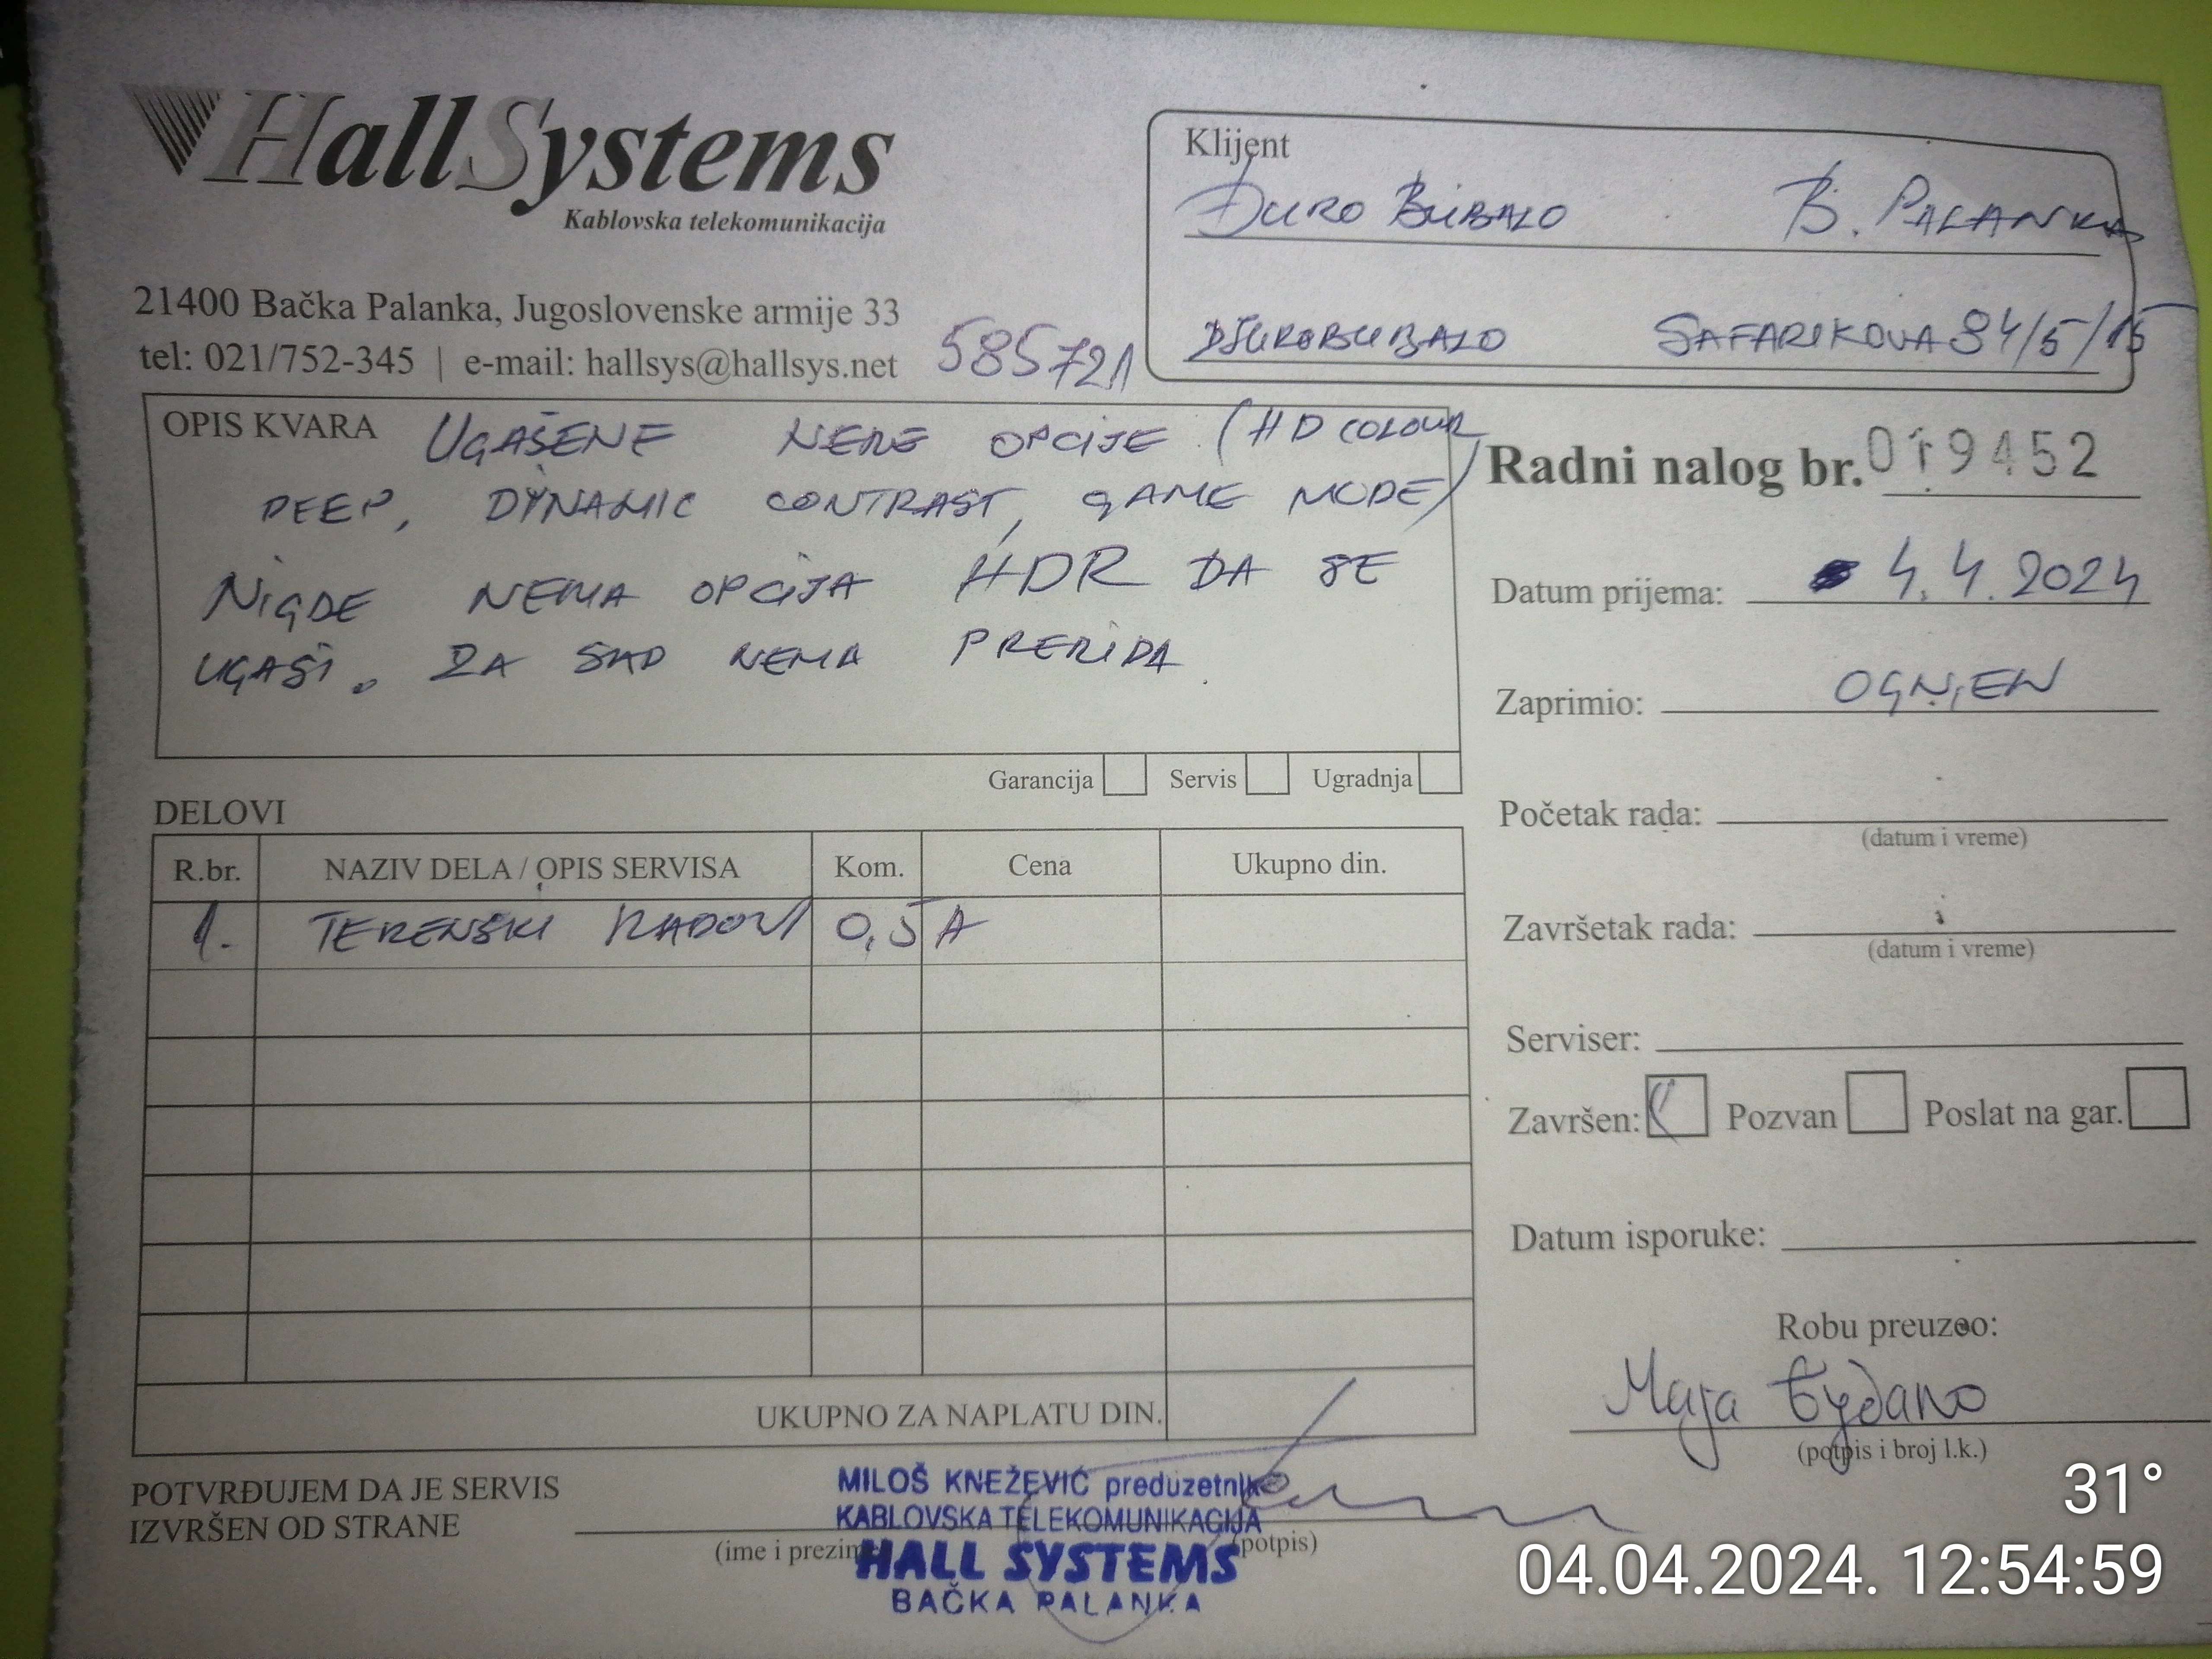 HallSystems
Kablovska telekomunikacija
21400 Bačka Palanka, Jugoslovenske armije 33
tel: 021/752-345 | e-mail: hallsys@hallsys.net
585721
Klijent
ĐURO BUBALO B. PALANKA
DJUROBUBALO SAFARIKOVA 84/5/15
OPIS KVARA UGAŠENE NEKE OPCIJE (HD COLOUR
DEEP, DYNAMIC CONTRAST, GAME MODE)
NIGDE NEMA OPCIJA HDR DA SE
UGASI. ZA SAD NEMA PREKIDA
Garancija Servis Ugradnja
Radni nalog br. 019452
Datum prijema: 4.4.2024
Zaprimio: OGNJEN
Početak rada:
(datum i vreme)
Završetak rada:
(datum i vreme)
Serviser:
Završen: Pozvan Poslat na gar.
Datum isporuke:
Robu preuzeo:
Maja
(potpis i broj l.k.)
DELOVI
R.br. NAZIV DELA / OPIS SERVISA Kom. Cena Ukupno din.
1. TERENSKI RADOVI 0,5 A
UKUPNO ZA NAPLATU DIN.
POTVRĐUJEM DA JE SERVIS
IZVRŠEN OD STRANE
(ime i prezime (potpis)
MILOŠ KNEŽEVIĆ preduzetnik
KABLOVSKA TELEKOMUNIKACIJA
HALL SYSTEMS
BAČKA PALANKA
31°
04.04.2024. 12:54:59